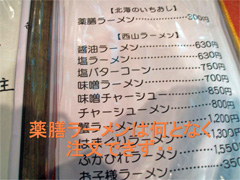 【北海のいちおし】
薬膳ラーメン………………800円
【西山ラーメン】
醤油ラーメン………………630円
塩ラーメン…………………630円
塩バターコーン……………750円
味噌ラーメン………………700円
味噌チャーシュー…………850円
チャーシューメン…………800円
蟹ラーメン…………1,200円
1,200円
ふかひれラーメン………1,500円
お子様ラーメン
薬膳ラーメンは何となく
注文できず・・
主